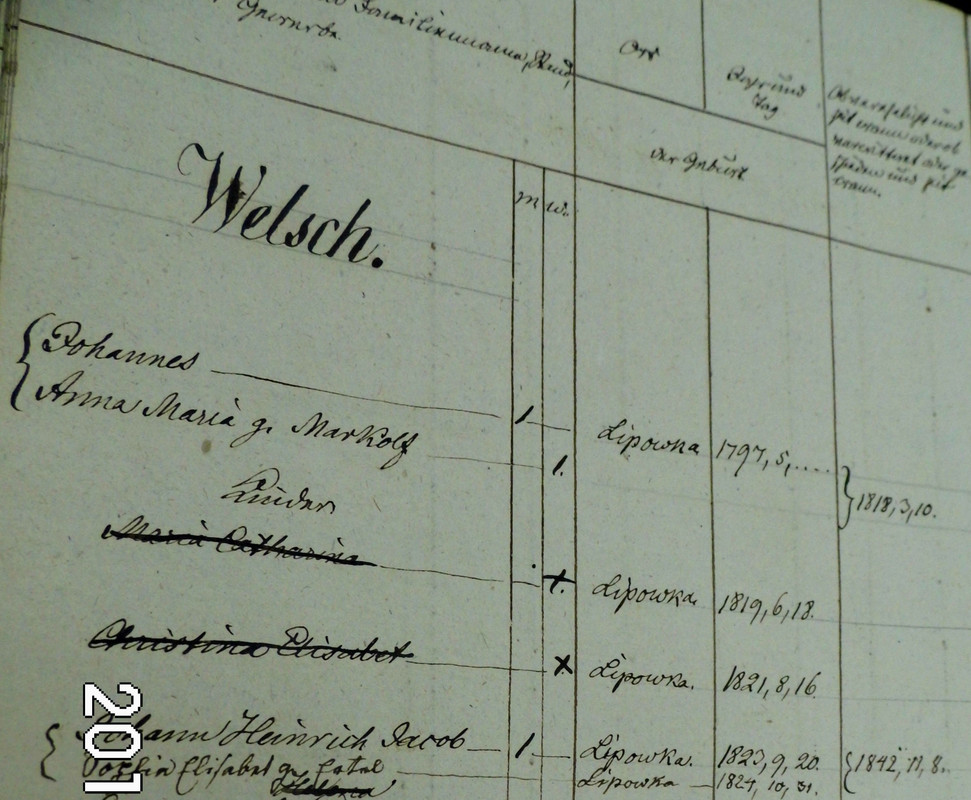 Familienname, Stand,
Gewerbe.
Ort
Jahr und
Tag
der Geburt
m w.
Welsch.
Johannes 1 Lipowka 1797, 5, ....
Anna Maria g. Markolf 1.
1818, 3, 10.
Kinder
Maria Catharina 1. Lipowka. 1819, 6, 18.
Christina Elisabet Lipowka. 1821, 8, 16.
Johann Heinrich Jacob 1 Lipowka. 1823, 9, 20.
1842, 11, 8.
Sophia Elisabet g. Ertel Lipowka 1824, 10, 31.
Helena
201